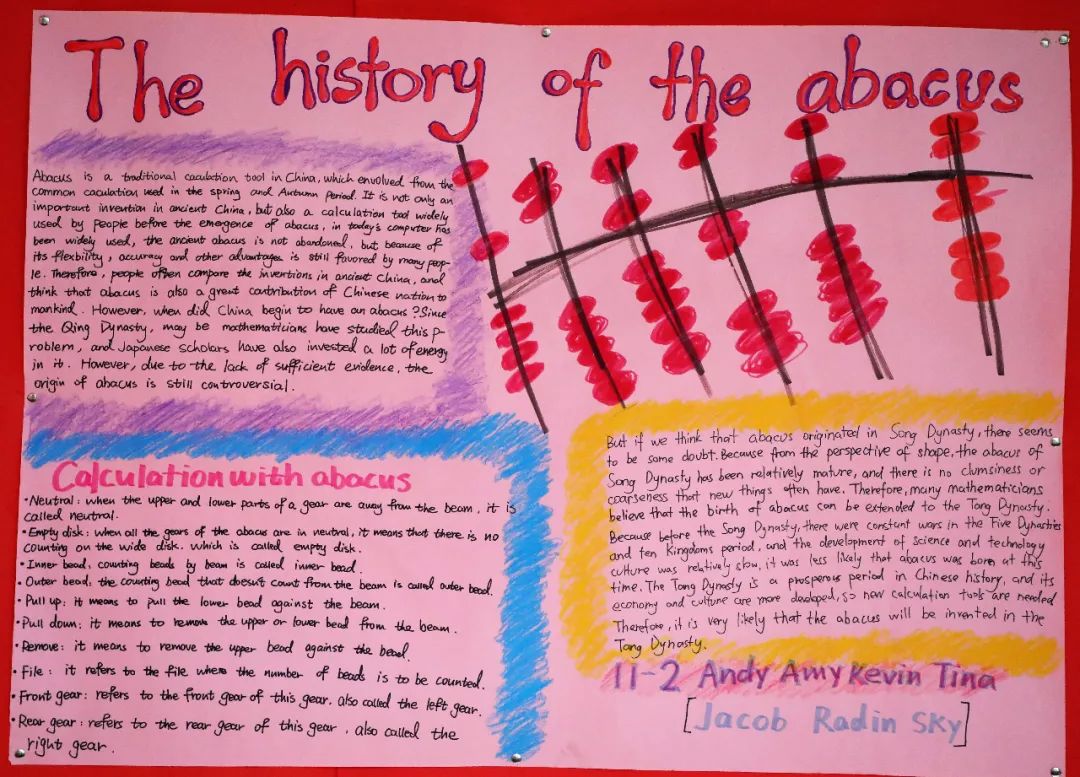 The history of the abacus
Abacus is a traditional caculation tool in China, which envolved from the
common caculation used in the spring and Autumn Period. It is not only an
important invention in ancient China, but also a calculation tool widely
used by people before the emergence of abacus, in today's computer has
been widely used, the ancient abacus is not abandoned, but because of
its flexbility, accuracy and other advantages is still favored by many peop-
le. Therefore, people often compare the inventions in ancient China, and
think that abacus is also a great contribution of Chinese nation to
mankind. However, when did China begin to have an abacus? Since
the Qing Dynasty, may be mathematicians have studied this p-
roblem, and Japanese scholars have also invested a lot of energy
in it. However, due to the lack of sufficient evidence, the
origin of abacus is still controversial.
Calculation with abacus
•Neutral: when the upper and lower parts of a gear are away from the beam, it is
called neutral.
•Empty disk: when all the gears of the abacus are in neutral, it means that there is no
counting on the wide disk. which is called empty disk.
•Inner bead, counting beads by beam is called inner bead.
•Outer bead, the counting bead that doesn't count from the beam is called outer bead.
•Pull up: it means to pull the lower bead against the beam.
•Pull down: it means to remove the upper or lower bead from the beam.
•Remove: it means to remove the upper bead against the bead.
•File: it refers to the file where the number of beads is to be counted.
•Front gear: refers to the front gear of this gear. also called the left gear.
•Rear gear: refers to the rear gear of this gear, also called the
right gear.
But if we think that abacus originated in Song Dynasty, there seems
to be some doubt. Because from the perspective of shape, the abacus of
Song Dynasty has been relatively mature, and there is no clumsiness or
coarseness that new things often have. Therefore, many mathematicians
believe that the birth of abacus can be extended to the Tang Dynasty.
Because before the Song Dynasty, there were constant wars in the Five Dynasties
and ten Kingdoms period, and the development of science and technology
culture was relatively slow, it was less likely that abacus was born at this
time. The Tang Dynasty is a prosperous period in Chinese history, and its
economy and culture are more developed, so new calculation tools are needed
Therefore, it is very likely that the abacus will be invented in the
Tang Dynasty.
11-2 Andy Amy Kevin Tina
[Jacob Radin Sky]